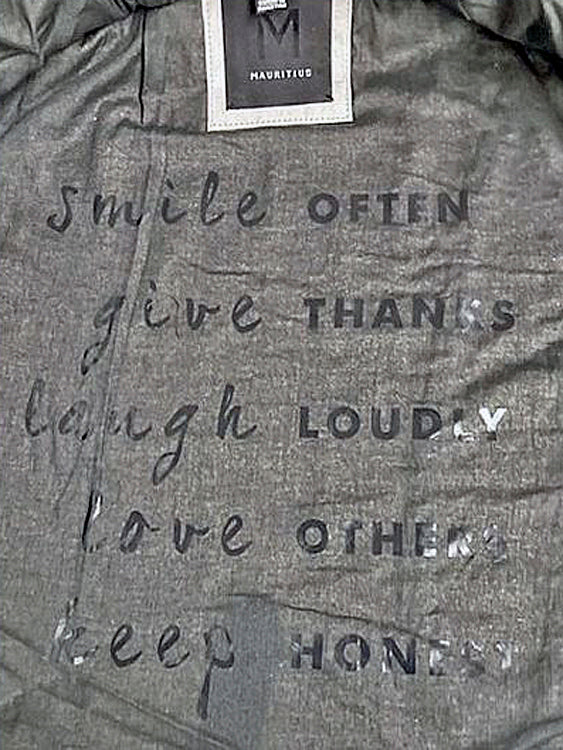 M
MAURITIUS
smile OFTEN
give THANKS
laugh LOUDLY
love OTHERS
keep HONEST